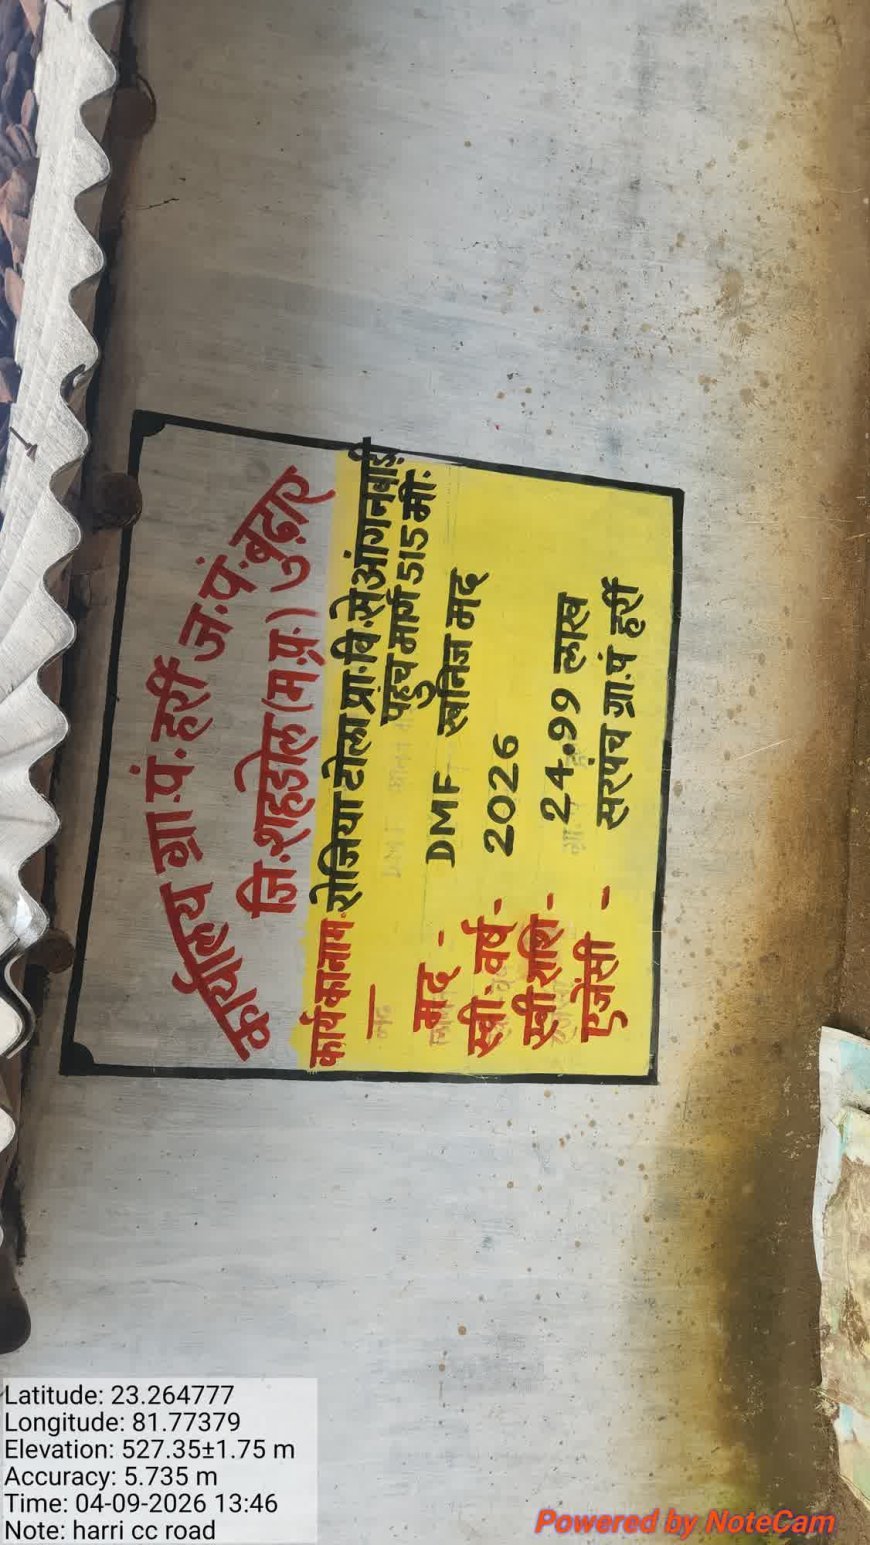 कार्यालय ग्रा.पं. हर्री ज.पं. बुढ़ार
जि.शहडोल (म.प्र.)
कार्य का नाम - रोजिया टोला प्रा.वि. से आंगनबाड़ी
पहुंच मार्ग 515 मी.
मद - DMF खनिज मद
स्वी. वर्ष - 2026
स्वी राशि - 24.99 लाख
एजेंसी - सरपंच ग्रा.पं हर्री
Latitude: 23.264777
Longitude: 81.77379
Elevation: 527.35±1.75 m
Accuracy: 5.735 m
Time: 04-09-2026 13:46
Note: harri cc road
Powered by NoteCam